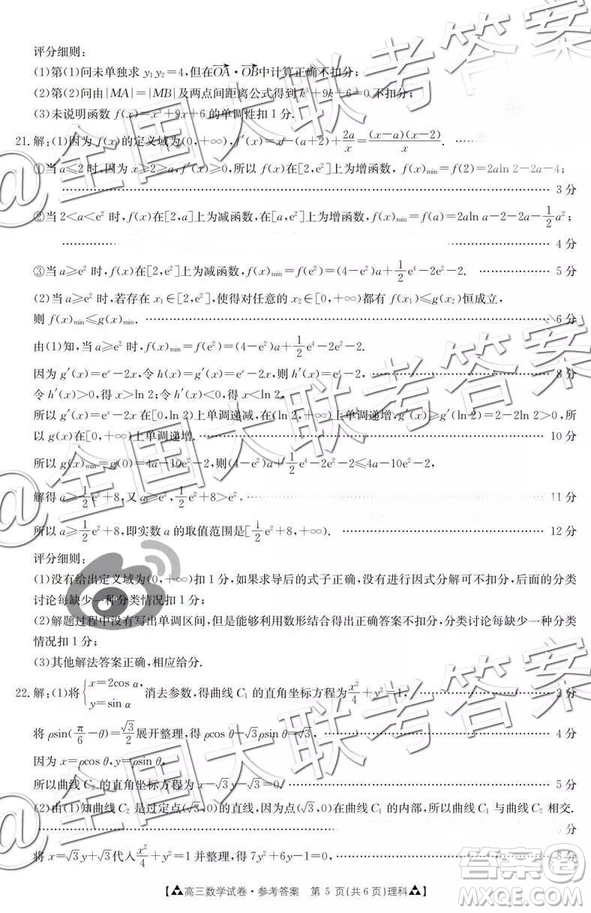 评分细则:
(1)第(1)问未单独求 y₁y₂=4,但在OA·OB中计算正确不扣分;
(2)第(2)问由|MA|=|MB|及两点间距离公式得到k³+9k+6=0不扣分;
(3)未说明函数 f(x)=x³+9x+6的单调性扣1分.
21.解:(1)因为f(x)的定义域为(0,+∞),f′(x)=x-(a+2)+2a/x=(x-a)(x-2)/x.
①当a≤2时,因为x>2,f′(x)≥0,所以f(x)在[2,e²]上为增函数,f(x)min=f(2)=2aln 2-2a-4;
3分
②当2<a<e²时,f(x)在[2,a]上为减函数,在[a,e²]上为增函数,f(x)min=f(a)=2aln a-2-2a-1/2a²;
4分
③当a≥e²时,f(x)在[2,e²]上为减函数,f(x)min=f(e²)=(4-e²)a+1/2e⁴-2e²-2. 5分
(2)当a≥e²时,若存在x₁∈[2,e²],使得对任意的x₂∈[0,+∞),f(x₁)≤g(x₂)恒成立,
则f(x)min≤g(x)min. 6分
由(1)知,当a≥e²时,f(x)min=f(e²)=(4-e²)a+1/2e⁴-2e²-2.
因为g′(x)=eˣ-2x,令h(x)=g′(x)=eˣ-2x,则h′(x)=eˣ-2, 8分
令h′(x)>0,得x>ln 2;令h′(x)<0,得x<ln 2.
所以g′(x)=eˣ-2x在[0,ln2)上单调递减,在(ln 2,+∞)上单调递增,所以g′(x)≥g′(ln 2)=2-2ln 2>0,
所以g(x)在[0,+∞)上单调递增. 10分
所以g(x)min=g(0)=4a-10-2e²,则(4-e²)a+1/2e⁴-2e²-2≤4a-10-2e²,
解得a≥1/2e²+8,又a≥e²,所以a≥1/2e²+8, 11分
所以a≥1/2e²+8,即实数a的取值范围是[1/2e²+8,+∞). 12分
评分细则:
(1)没有给出定义域为(0,+∞)扣1分,如果求导后的式子正确,没有进行因式分解可不扣分;后面的分类
讨论每缺少一种分类情况扣1分;
(2)解题过程中没有写出单调区间,但能够利用数形结合方法求出正确答案不扣分,分类讨论每缺少一种情况
扣1分;
(3)其他解法答案正确,相应给分.
22.解:(1)将{x=2cos α, y=sin α 消去参数,得曲线C₁的直角坐标方程为x²/4+y²=1, 3分
将ρsin(π/6-θ)=√3/2展开整理,得ρcos θ-√3ρsin θ=√3,
因为x=ρcos θ,y=ρsin θ,
所以曲线C₂的直角坐标方程为x-√3y-√3=0. 5分
(2)由(1)知曲线C₂是过定点(√3,0)的直线,因为点(√3,0)在曲线C₁的内部,所以曲线C₁与曲线C₂相交.
6分
将x=√3y+√3代入x²/4+y²=1,并整理,得7y²+6y-1=0, 8分
高三数学试卷·参考答案 第5页(共6页)理科
@全国大联考答案
@全国大联考答案
@全国大联考答案
答案圈
MXQE.COM